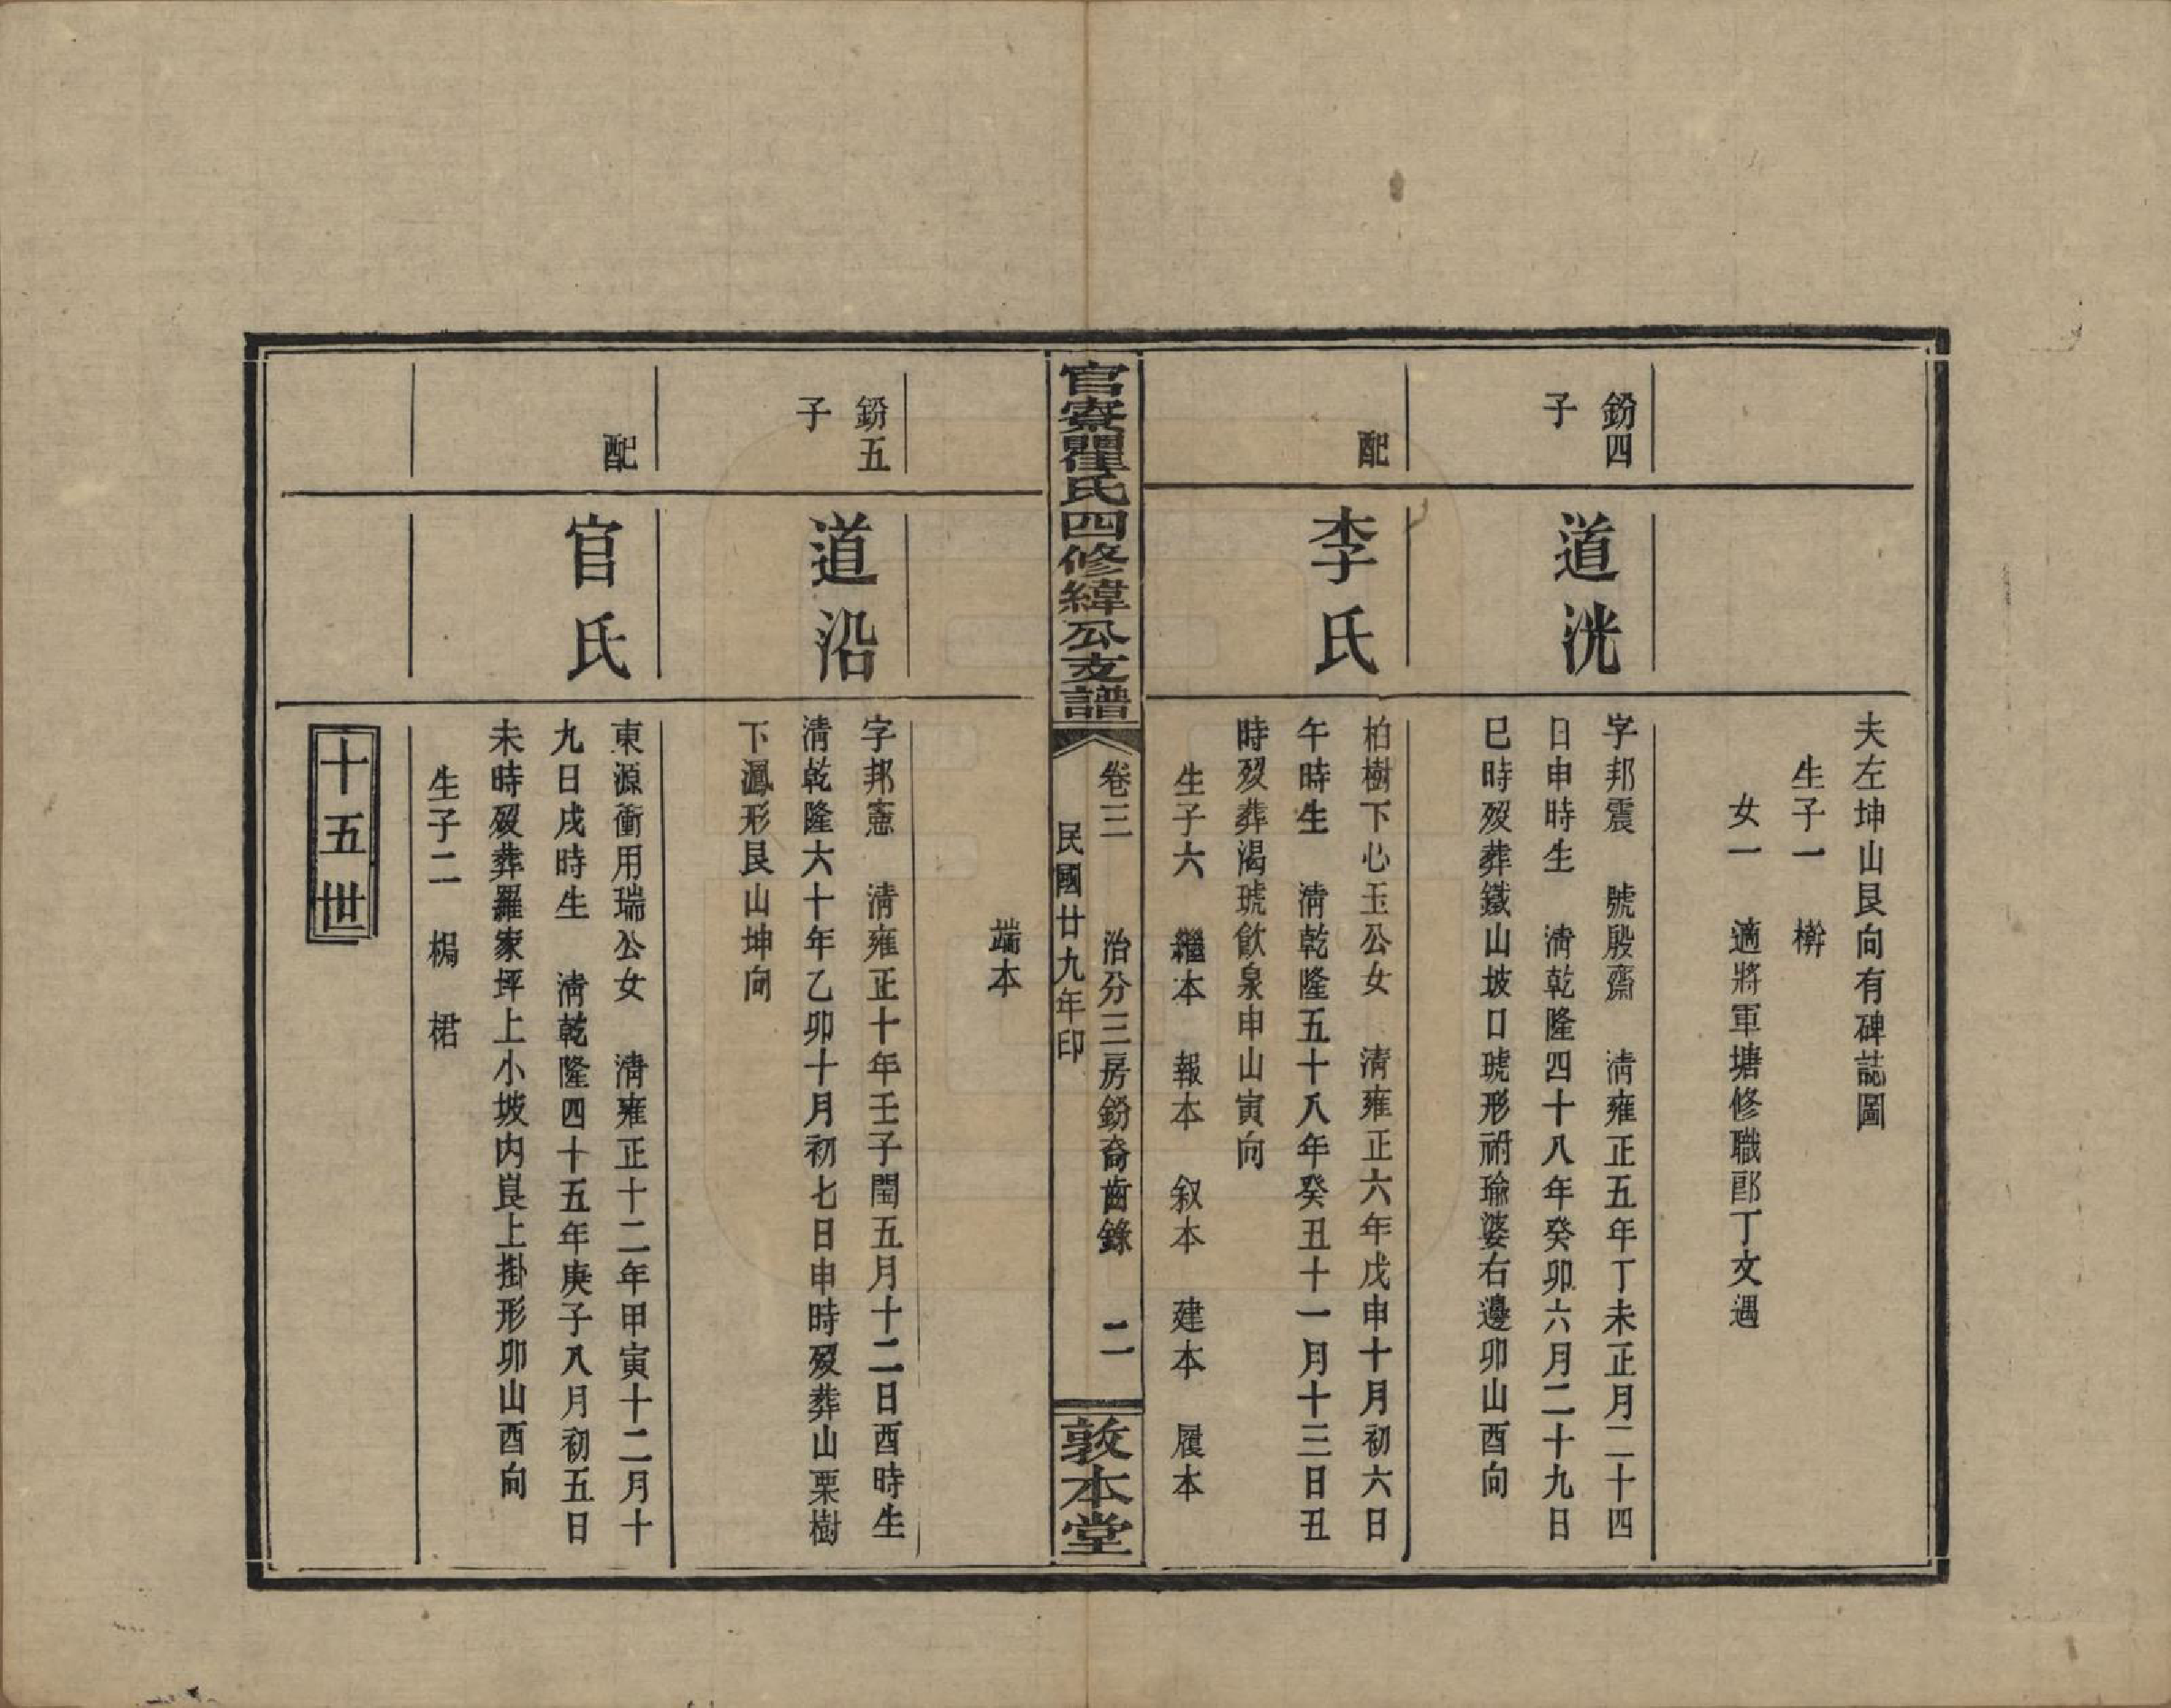 夫左坤山艮向有碑誌圖
生子一　檊
女一　適將軍塘修職郎丁文遇
鈖四
子
道洸
字邦震　號殷齋　清雍正五年丁未正月二十四
日申時生　清乾隆四十八年癸卯六月二十九日
巳時歿葬鐵山坡口琥形祔瑜婆右邊卯山酉向
配
李氏
柏樹下心玉公女　清雍正六年戊申十月初六日
午時生　清乾隆五十八年癸丑十一月十三日丑
時歿葬渴琥飲泉申山寅向
生子六　繼本　報本　叙本　建本　履本
官寮瞿氏四修緯公支譜
卷三　治分三房鈖裔齒錄　二
民國廿九年印
敦本堂
端本
鈖五
子
道沿
字邦憲　清雍正十年壬子閏五月十二日酉時生
清乾隆六十年乙卯十月初七日申時歿葬山栗樹
下鳳形艮山坤向
配
官氏
東源衝用瑞公女　清雍正十二年甲寅十二月十
九日戌時生　清乾隆四十五年庚子八月初五日
未時歿葬羅家坪上小坡内崀上掛形卯山酉向
生子二　榻　桾
十五世